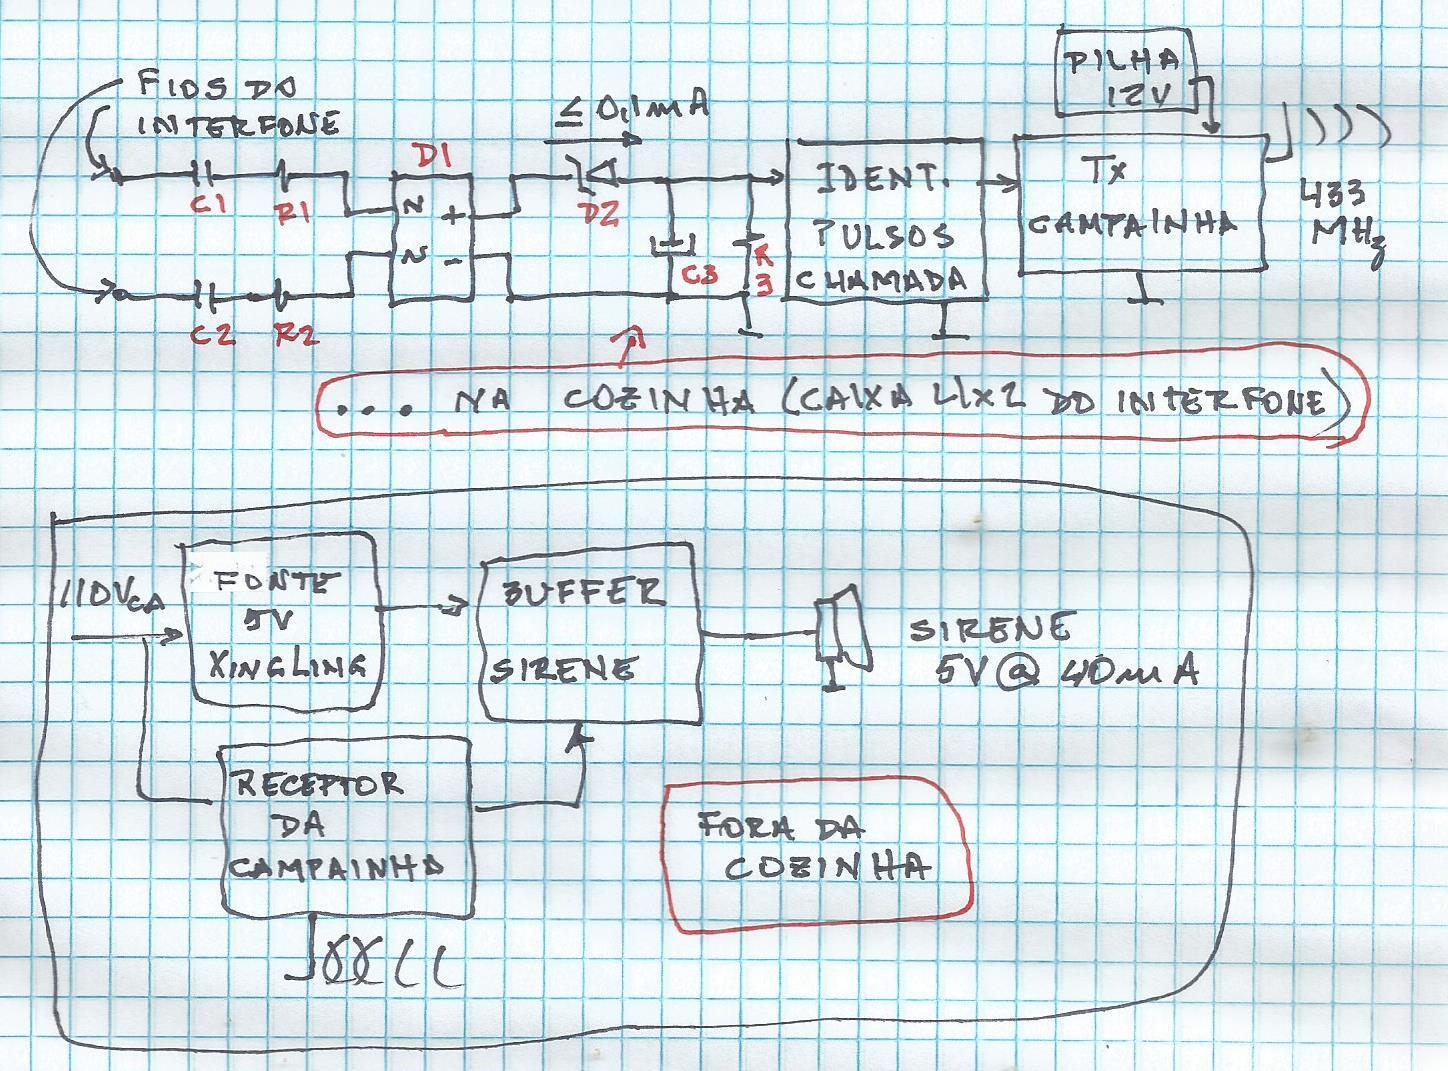 FIOS DO
INTERFONE
C1
R1
C2
R2
D1
N
+
N
-
≤ 0,1mA
D2
C3
R
3
IDENT.
PULSOS
CHAMADA
PILHA
12V
TX
CAMPAINHA
433
MHz
... NA COZINHA (CAIXA 4x2 DO INTERFONE)
110VCA
FONTE
5V
XINGLING
BUFFER
SIRENE
SIRENE
5V @ 40mA
RECEPTOR
DA
CAMPAINHA
FORA DA
COZINHA